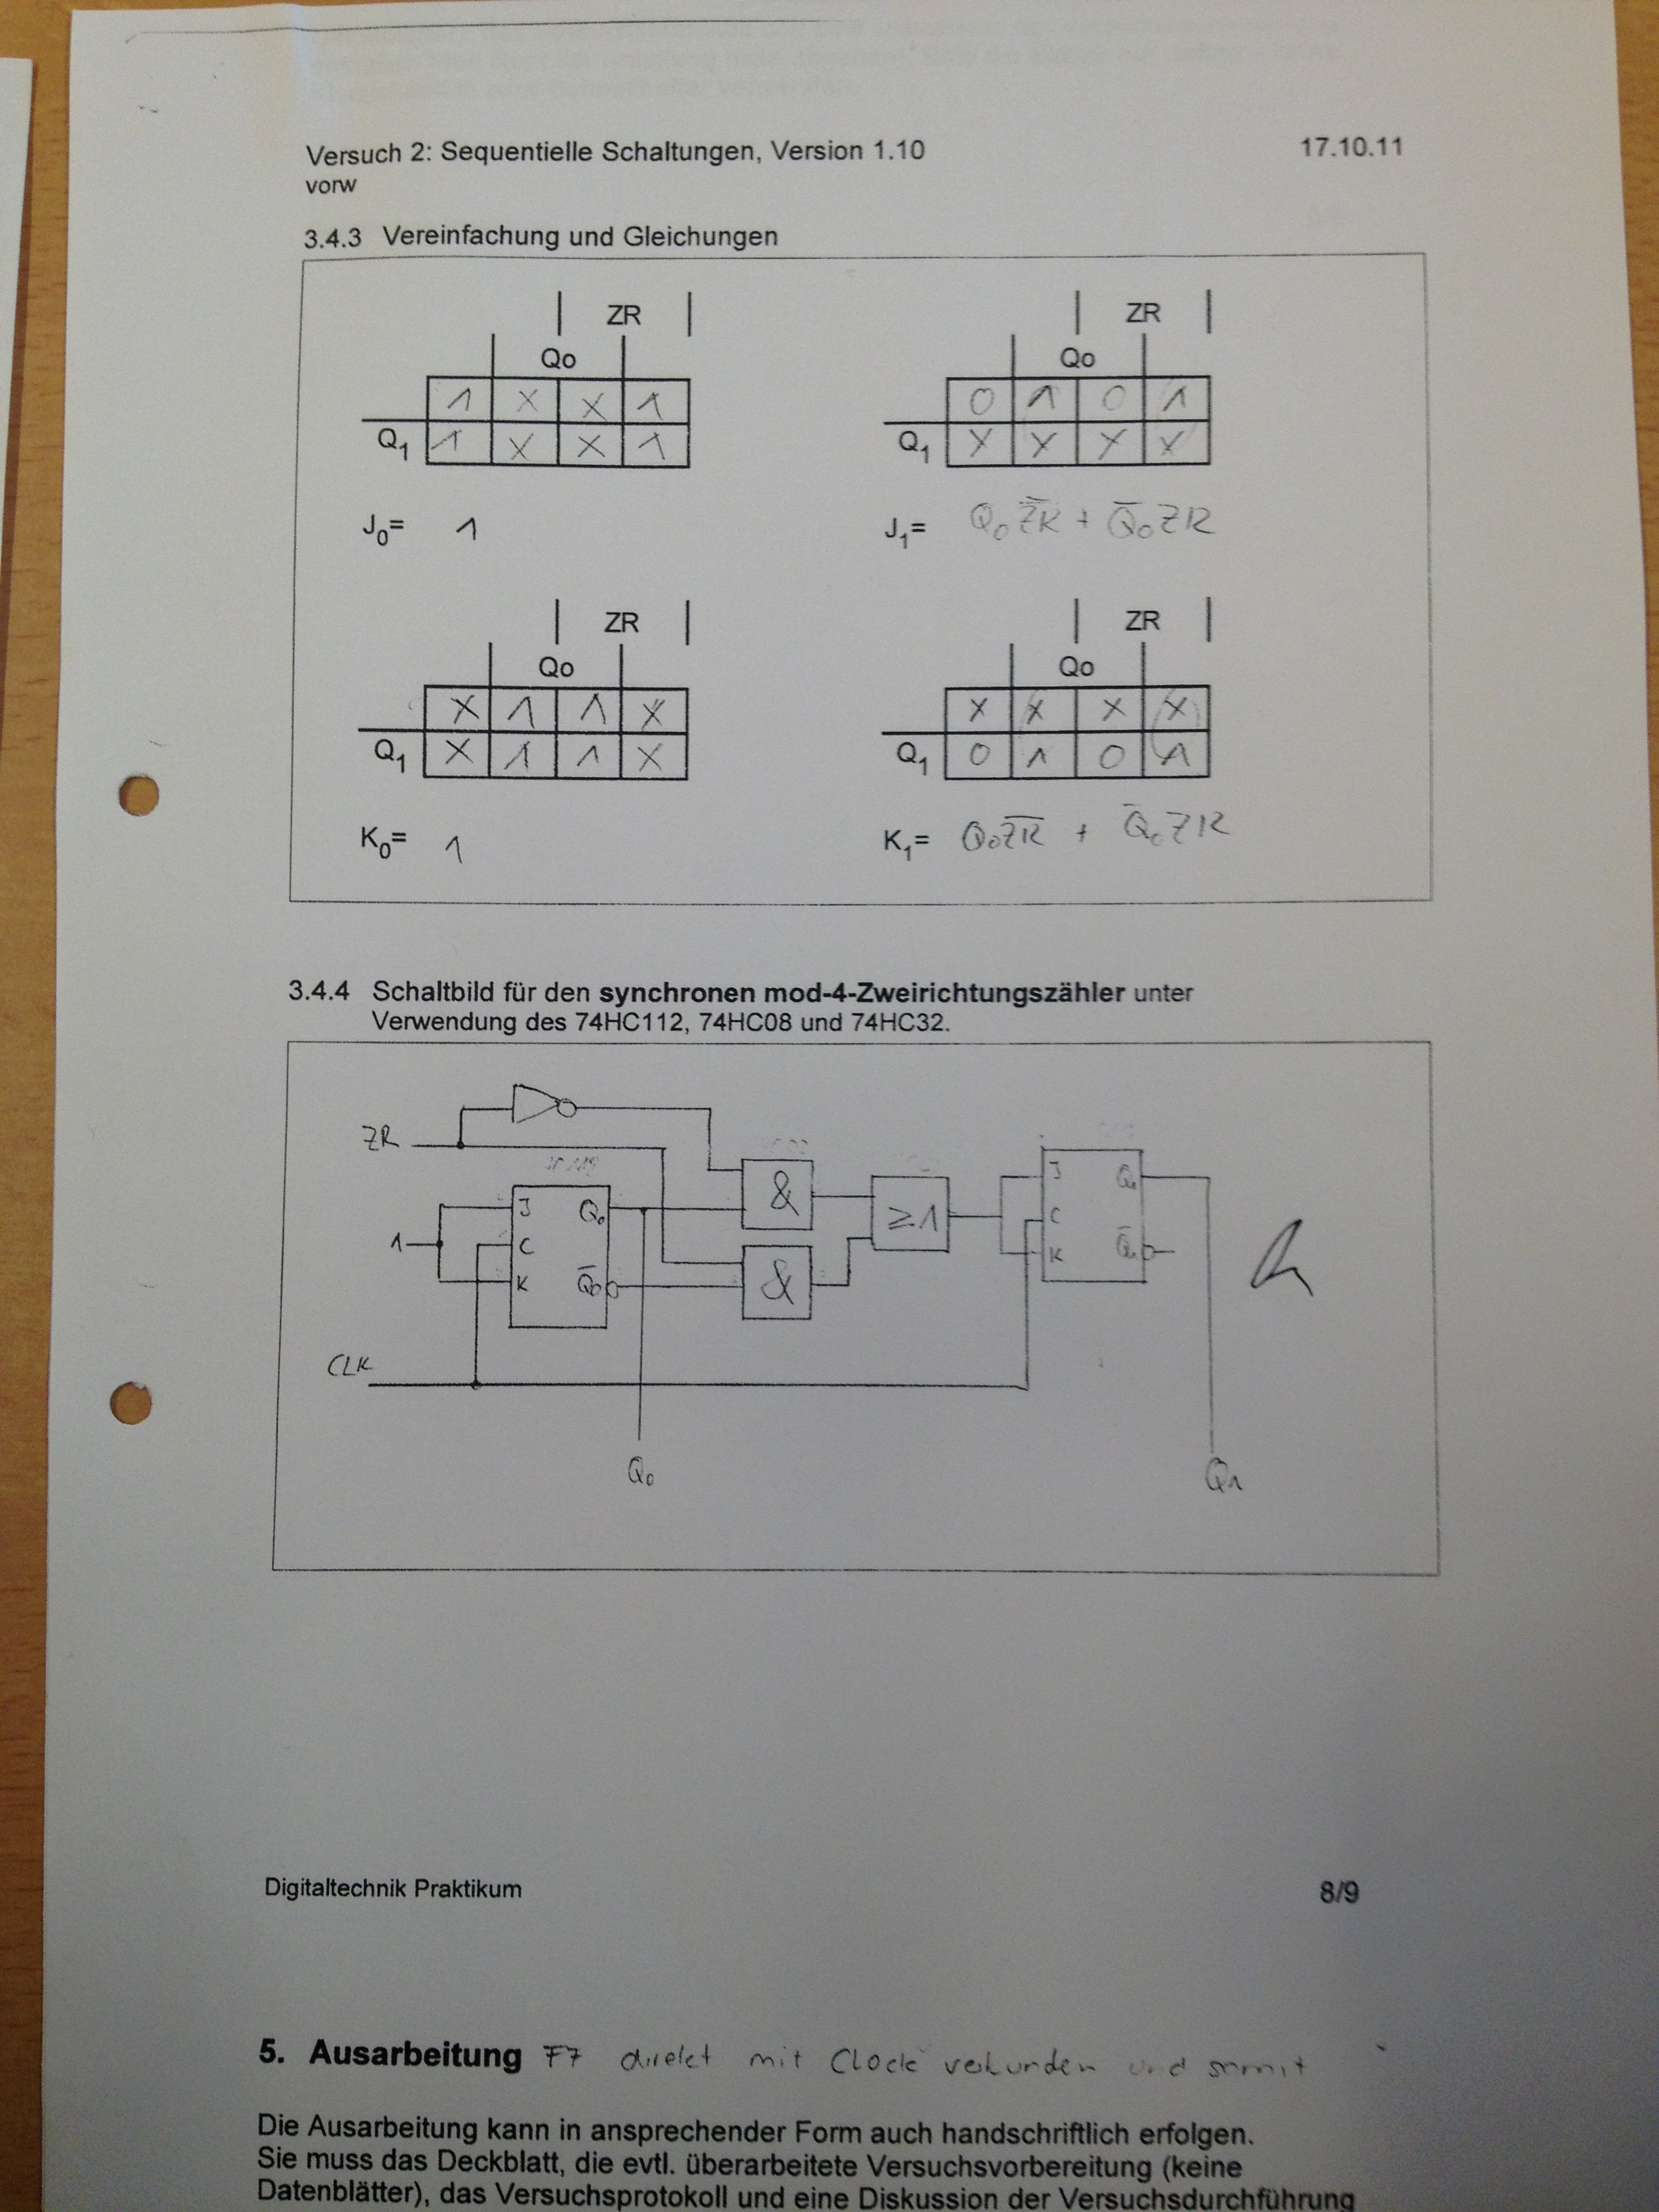 Versuch 2: Sequentielle Schaltungen, Version 1.10 17.10.11
vorw
3.4.3 Vereinfachung und Gleichungen
ZR ZR
Qo Qo
1 X X 1 0 1 0 1
Q1 1 X X 1 Q1 X X X X
J0= 1 J1= Q0 Z̅R̅ + Q̅0 ZR
ZR ZR
Qo Qo
X 1 1 X X X X X
Q1 X 1 1 X Q1 0 1 0 1
K0= 1 K1= Q0 Z̅R̅ + Q̅0 ZR
3.4.4 Schaltbild für den synchronen mod-4-Zweirichtungszähler unter
Verwendung des 74HC112, 74HC08 und 74HC32.
ZR
J Q0 & ≥1 J Q1
1 C C
K Q̅0 & K Q̅1
CLK
Q0 Q1
Digitaltechnik Praktikum 8/9
5. Ausarbeitung F7 direkt mit Clock verbunden und somit
Die Ausarbeitung kann in ansprechender Form auch handschriftlich erfolgen.
Sie muss das Deckblatt, die evtl. überarbeitete Versuchsvorbereitung (keine
Datenblätter), das Versuchsprotokoll und eine Diskussion der Versuchsdurchführung